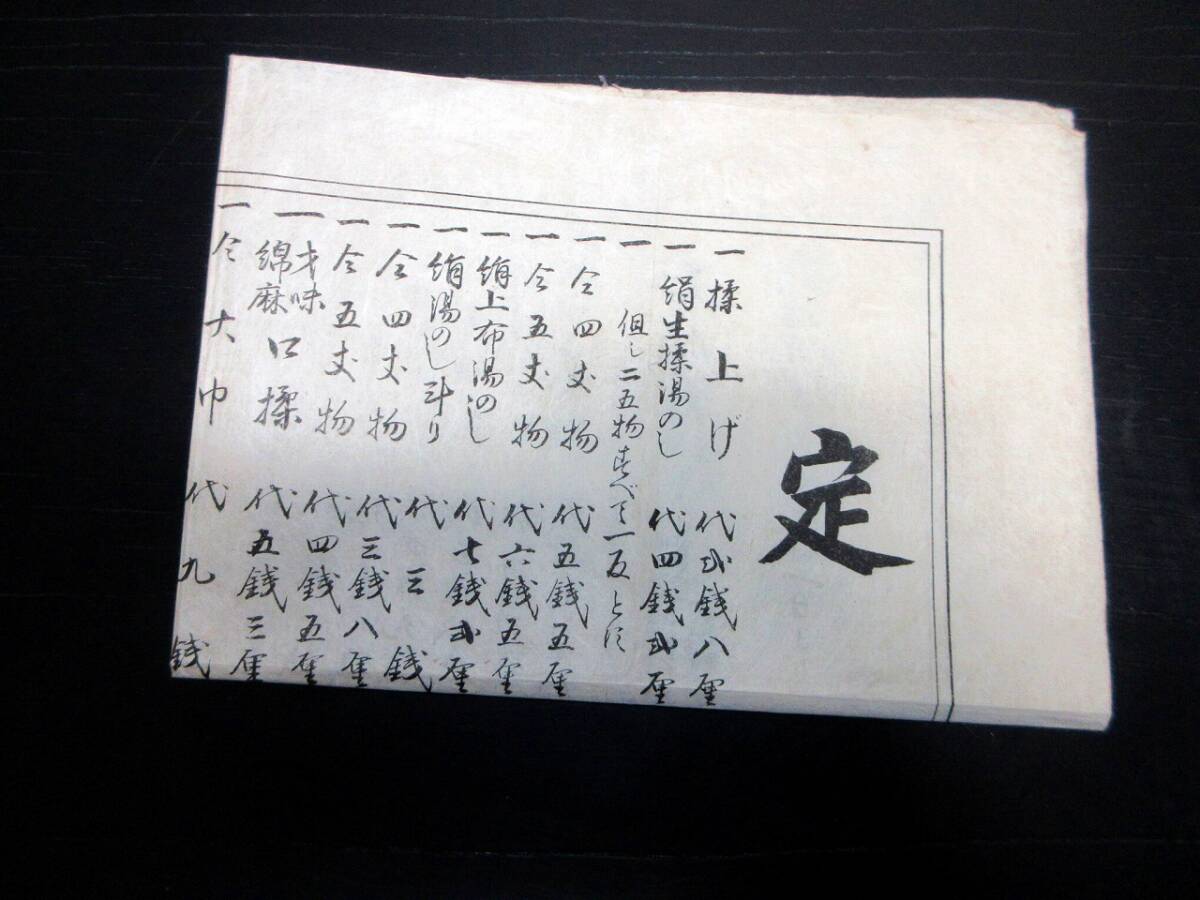 定
一 揉上げ 代弐銭八厘
一 絹生揉湯のし 代四銭弐厘
一 但し二五物すべて一反とす
一 仝四丈物 代五銭五厘
一 仝五丈物 代六銭五厘
一 絹上布湯のし 代七銭弐厘
一 絹湯のし斗り 代三銭
一 仝四丈物 代三銭八厘
一 仝五丈物 代四銭五厘
一 綿麻才味口揉 代五銭三厘
一 仝大巾 代九銭